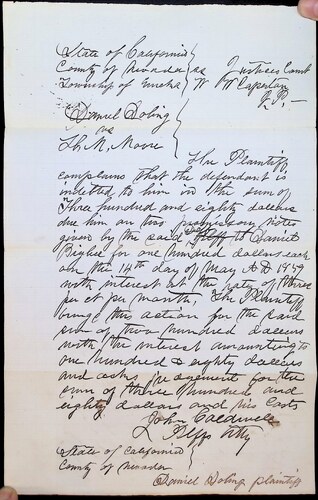 State of California
County of Nevada ss Justices Court
Township of Eureka W W Caperton
J. P. —
Daniel Boling
vs
Th. M. Moore
The Plaintiff
complains that the defendant is
indebted to him in the sum of
Three hundred and eighty dollars
due him on two promissory notes
given by the said to Daniel
for one hundred dollars each
on the 14th day of May AD 1859
with interest at the rate of three
per ct per month, The Plaintiff
brings this action for the said
sum of two hundred dollars
with the interest amounting to
one hundred & eighty dollars
and asks judgement for the
sum of three hundred and
eighty dollars and his costs
John Caldwell
Plffs Atty
State of California
County of Nevada
Daniel Boling plaintiff